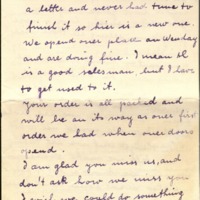 a letter and never had time to
finish it so hier is a new one
We opend over place on Wensday
and are doing fine. I mean El
is a good sales man, but I have
to get used to it.
Your order is all packed and
will be on its way as over first
order we had when over doors
opend.
I am glad you miss us, and
don't ask how we miss you
I wish we could do something